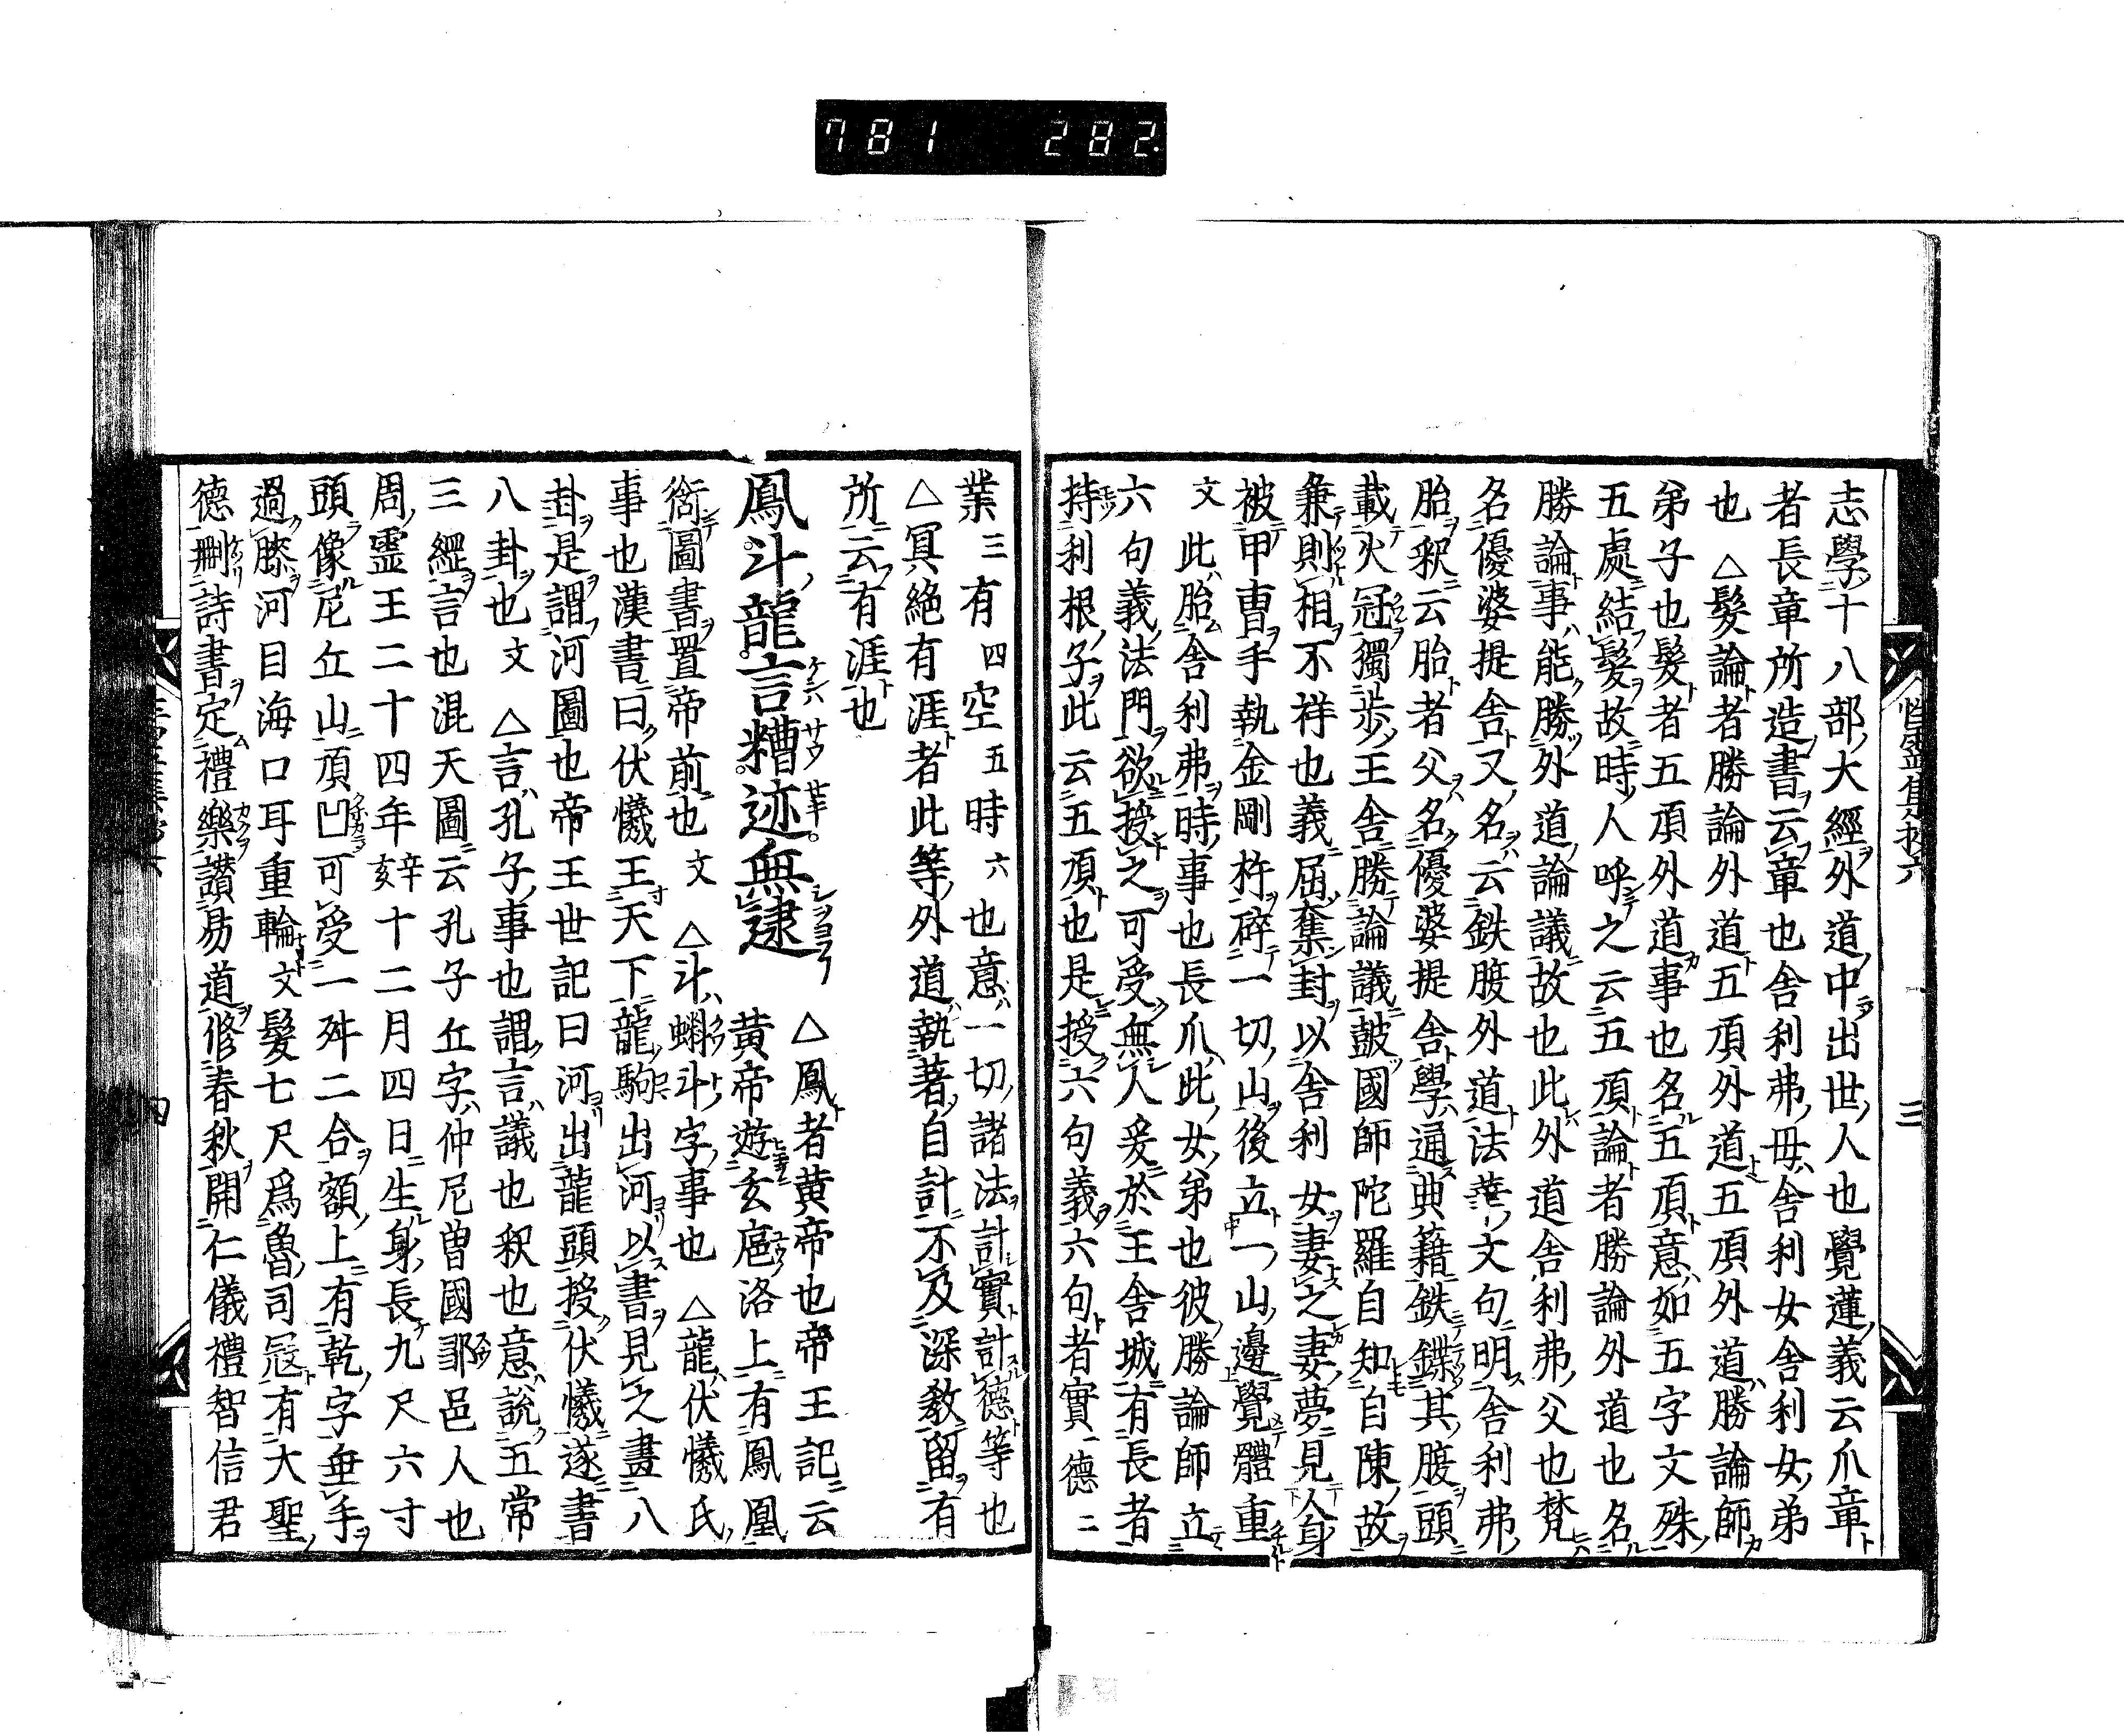 781 282
三
志學十八部大經外道中出世人也覺蓮義云爪章
者長章所造書云章也舎利弗母舎利女舎利女弟
也△髮論者勝論外道五頂外道五頂外道勝論師
弟子也髮者五頂外道事也名五頂意如五字文殊
五處結髮故時人呼之云五頂論者勝論外道也名
勝論事能勝外道論議故也此外道舎利弗父也梵
名優婆提舎又名云鉄腹外道法華文句明舎利弗
胎釈云胎者父名優婆提舎學通典籍鉄鍱其腹頭
載火冠獨歩王舎勝論議皷國師陀羅自知自陳故
兼則相不祥也義屈奪封以舎利女妻之妻夢見人身
被甲曹手執金剛杵碎一切山後立一山邊覺體重
文此胎舎利弗時事也長爪此女弟也彼勝論師立
六句義法門欲授之可受無人爰於王舎城有長者
持利根子此云五頂也是授六句義六句者實一德二
業三有四空五時六也意一切諸法計實計德等也
△冥絶有涯者此等外道執著自計不及深教留有
所云有涯也
鳳斗龍言糟迹無逮 △鳳者黄帝也帝王記云
黄帝遊玄扈洛上有鳳凰
銜圖書置帝前也文△斗蝌斗字事也△龍伏犧氏
事也漢書曰伏犧王天下龍駒出河以書見之畫八
卦是謂河圖也帝王世記曰河出龍頭授伏犧遂書
八卦也文△言孔子事也謂言議也釈也意説五常
三經言也混天圖云孔子丘字仲尼曽國郰邑人也
周霊王二十四年辛亥十二月四日生身長九尺六寸
頭像尼丘山頂凹可受一舛二合額上有乾字垂手
過膝河目海口耳重輪文髮七尺爲魯司冦有大聖
德刪詩書定禮樂讃易道修春秋開仁儀禮智信君